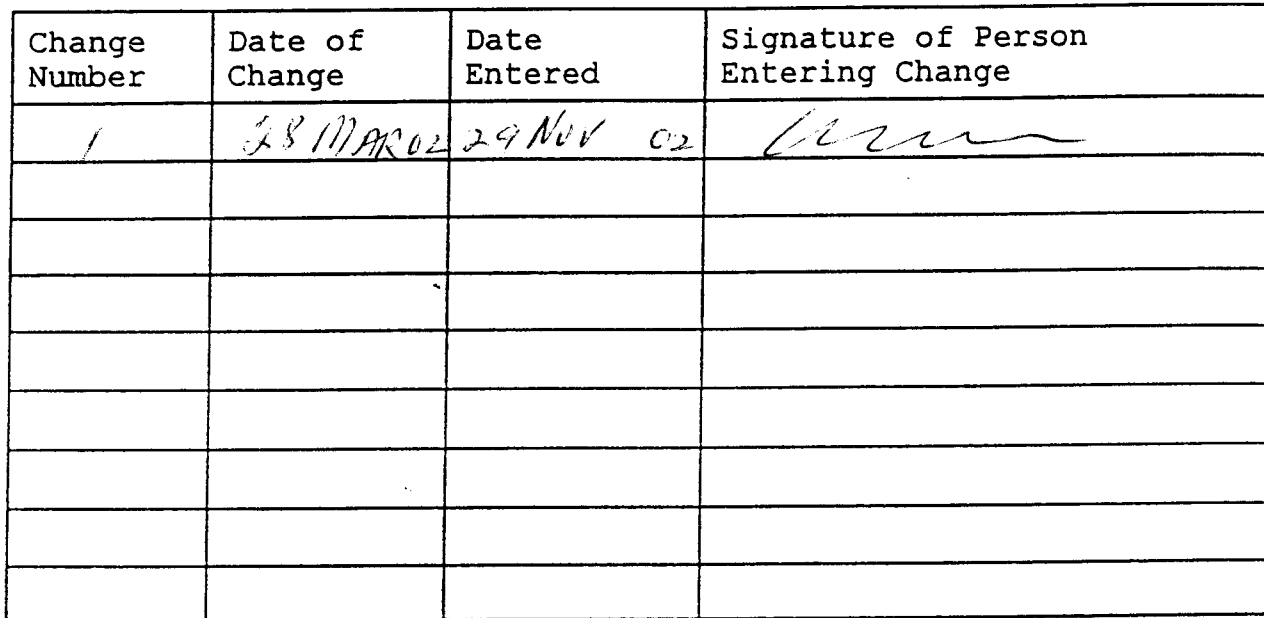 Change Number
Date of Change
Date Entered
Signature of Person Entering Change
1
28 MAR 02
29 NOV 02